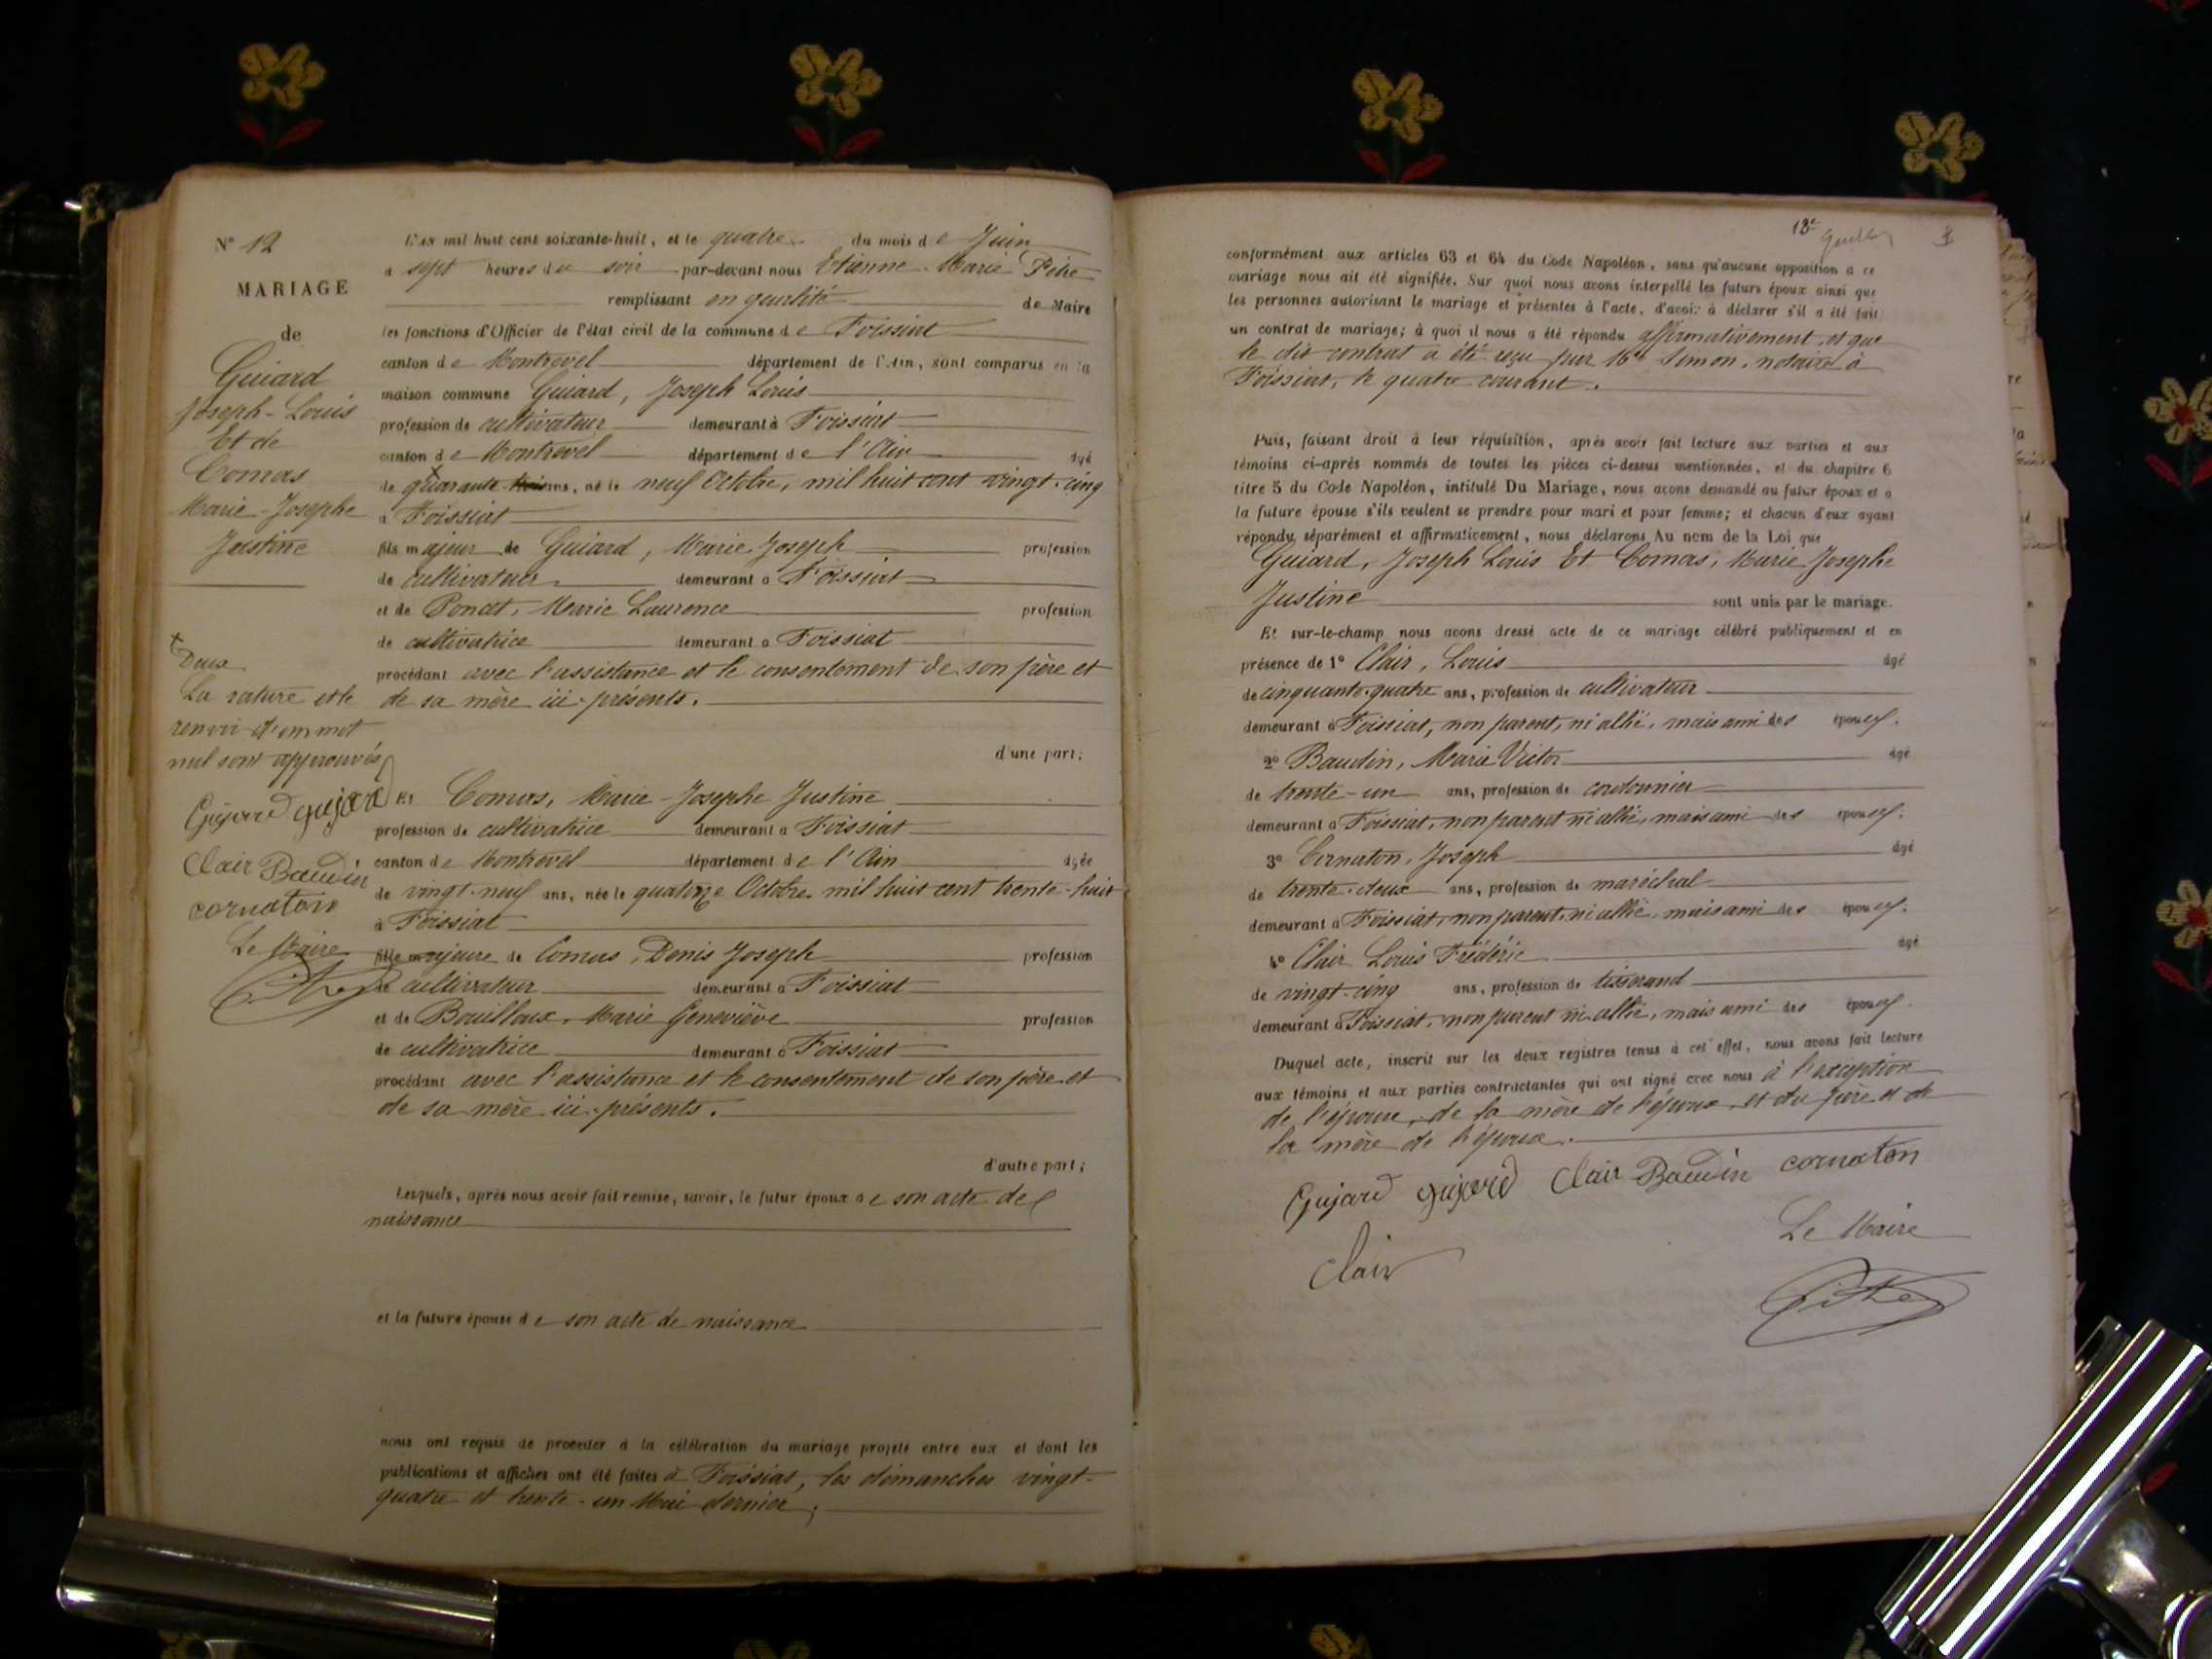 N° 12
MARIAGE
de
Guiard
Joseph-Louis
Et de
Comas
Marie-Josephe
Justine
+ Deux
La rature et le
renvoi d'un mot
nul sont approuvés
Gujard gujard
Clair Baudin
cornaton
Le Maire
L'an mil huit cent soixante-huit, et le quatre du mois de Juin
à sept heures du soir par-devant nous Etienne Marie
remplissant en qualité de Maire
les fonctions d'Officier de l'état civil de la commune de Foissiat
canton de Montrevel département de l'Ain, sont comparus en la
maison commune Guiard, Joseph Louis
profession de cultivateur demeurant à Foissiat
canton de Montrevel département de l'Ain âgé
de quarante ans, né le neuf Octobre, mil huit cent vingt-cinq
à Foissiat
fils majeur de Guiard, Marie Joseph profession
de cultivateur demeurant à Foissiat
et de Poncet, Marie Laurence profession
de cultivatrice demeurant à Foissiat
procédant avec l'assistance et le consentement de son père et
de sa mère ici présents.
d'une part;
Et Comas, Marie-Josephe Justine
profession de cultivatrice demeurant à Foissiat
canton de Montrevel département de l'Ain âgée
de vingt-neuf ans, née le quatorze Octobre mil huit cent trente-huit
à Foissiat
fille majeure de Comas, Denis Joseph profession
de cultivateur demeurant à Foissiat
et de Bouilloux, Marie Geneviève profession
de cultivatrice demeurant à Foissiat
procédant avec l'assistance et le consentement de son père et
de sa mère ici présents.
d'autre part;
Lesquels, après nous avoir fait remise, savoir, le futur époux de son acte de
naissance
et la future épouse de son acte de naissance
nous ont requis de procéder à la célébration du mariage projeté entre eux et dont les
publications et affiches ont été faites à Foissiat, les dimanches vingt-
quatre et trente-un Mai dernier;
18e
conformément aux articles 63 et 64 du Code Napoléon, sans qu'aucune opposition à ce
mariage nous ait été signifiée. Sur quoi nous avons interpellé les futurs époux ainsi que
les personnes autorisant le mariage et présentes à l'acte, d'avoir à déclarer s'il a été fait
un contrat de mariage; à quoi il nous a été répondu affirmativement et que
le dit contrat a été reçu par Me Simon, notaire à
Foissiat, le quatre courant.
Puis, faisant droit à leur réquisition, après avoir fait lecture aux parties et aux
témoins ci-après nommés de toutes les pièces ci-dessus mentionnées, et du chapitre 6
titre 5 du Code Napoléon, intitulé Du Mariage, nous avons demandé au futur époux et à
la future épouse s'ils veulent se prendre pour mari et pour femme; et chacun d'eux ayant
répondu séparément et affirmativement, nous déclarons Au nom de la Loi que
Guiard, Joseph Louis Et Comas, Marie Josephe
Justine sont unis par le mariage.
Et sur-le-champ nous avons dressé acte de ce mariage célébré publiquement et en
présence de 1° Clair, Louis âgé
de cinquante-quatre ans, profession de cultivateur
demeurant à Foissiat, non parent, ni allié, mais ami des époux.
2° Baudin, Marie Victor âgé
de trente-un ans, profession de cordonnier
demeurant à Foissiat, non parent ni allié, mais ami des époux.
3° Cornaton, Joseph âgé
de trente-deux ans, profession de maréchal
demeurant à Foissiat, non parent, ni allié, mais ami des époux.
4° Clair Louis Frédéric âgé
de vingt-cinq ans, profession de tisserand
demeurant à Foissiat, non parent ni allié, mais ami des époux.
Duquel acte, inscrit sur les deux registres tenus à cet effet, nous avons fait lecture
aux témoins et aux parties contractantes qui ont signé avec nous à l'exception
de l'épouse, de la mère de l'époux, et du père et de
la mère de l'épouse.
Gujard gujard Clair Baudin cornaton
Clair
Le Maire